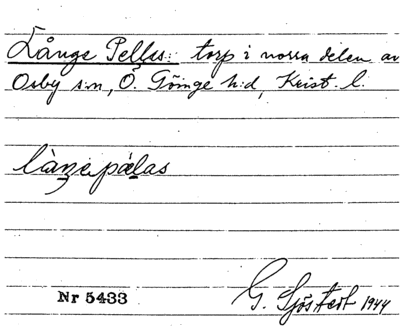 Långe Pelles: torp i norra delen av
Osby s:n, Ö. Göinge h:d, Krist. l.
làŋepǽlas
Nr 5433
G. Sjöstedt 1944